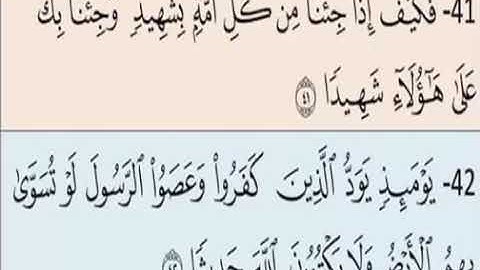 41- فَكَيْفَ إِذَا جِئْنَا مِن كُلِّ أُمَّةٍ بِشَهِيدٍ وَجِئْنَا بِكَ
عَلَىٰ هَٰٓؤُلَآءِ شَهِيدًا ٤١
42- يَوْمَئِذٍ يَوَدُّ الَّذِينَ كَفَرُوا۟ وَعَصَوُا۟ الرَّسُولَ لَوْ تُسَوَّىٰ
بِهِمُ الْأَرْضُ وَلَا يَكْتُمُونَ اللَّهَ حَدِيثًا ٤٢